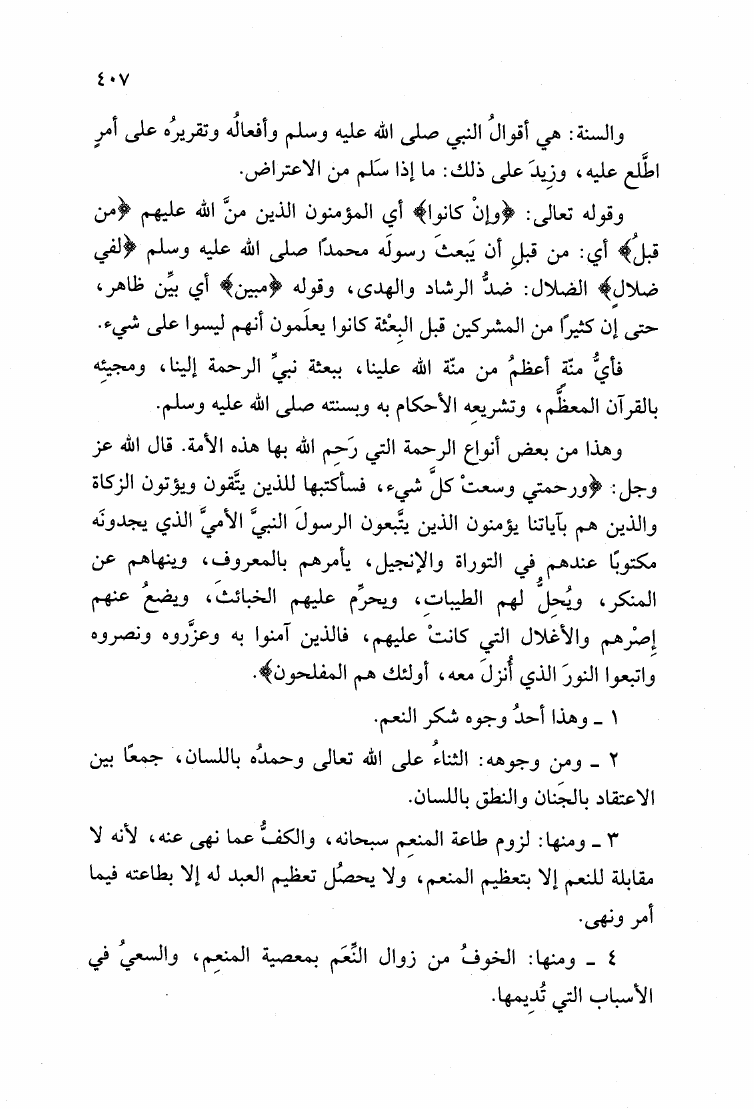 ٤٠٧
والسنة: هي أقوالُ النبي صلى الله عليه وسلم وأفعالُه وتقريرُه على أمرٍ
اطَّلع عليه، وزِيدَ على ذلك: ما إذا سَلم من الاعتراض.
وقوله تعالى: ﴿وإنْ كانوا﴾ أي المؤمنون الذين منَّ الله عليهم ﴿من
قبلُ﴾ أي: من قبلِ أن يَبعثَ رسولَه محمدًا صلى الله عليه وسلم ﴿لفي
ضلالٍ﴾ الضلال: ضدُّ الرشاد والهدى، وقوله ﴿مبين﴾ أي بيِّن ظاهر،
حتى إن كثيرًا من المشركين قبل البِعْثة كانوا يعلَمون أنهم ليسوا على شيء.
فأيُّ منّةٍ أعظمُ من منة الله علينا، ببعثة نبيِّ الرحمة إلينا، ومجيئِه
بالقرآن المعظَّم، وتشريعِه الأحكام به وبسنته صلى الله عليه وسلم.
وهذا من بعض أنواع الرحمة التي رَحِم الله بها هذه الأمة. قال الله عز
وجل: ﴿ورحمتي وسعتْ كلَّ شيء، فسأكتبها للذين يتَّقون ويؤتون الزكاة
والذين هم بآياتنا يؤمنون الذين يتَّبعون الرسولَ النبيَّ الأميَّ الذي يجدونَه
مكتوبًا عندهم في التوراة والإنجيل، يأمرهم بالمعروف، وينهاهم عن
المنكر، ويُحِلُّ لهم الطيباتِ، ويحرِّم عليهم الخبائثَ، ويضعُ عنهم
إصْرهم والأغلال التي كانتْ عليهم، فالذين آمنوا به وعزَّروه ونصروه
واتبعوا النورَ الذي أُنزلَ معه، أولئك هم المفلحون﴾.
١ ـ وهذا أحدُ وجوه شكر النعم.
٢ ـ ومن وجوهه: الثناءُ على الله تعالى وحمدُه باللسان، جمعًا بين
الاعتقاد بالجَنان والنطق باللسان.
٣ ـ ومنها: لزوم طاعة المنعِم سبحانه، والكفُّ عما نهى عنه، لأنه لا
مقابلة للنعم إلا بتعظيم المنعم، ولا يحصُل تعظيم العبد له إلا بطاعته فيما
أمر ونهى.
٤ ـ ومنها: الخوفُ من زوال النِّعَم بمعصية المنعِم، والسعيُ في
الأسباب التي تُدِيمها.